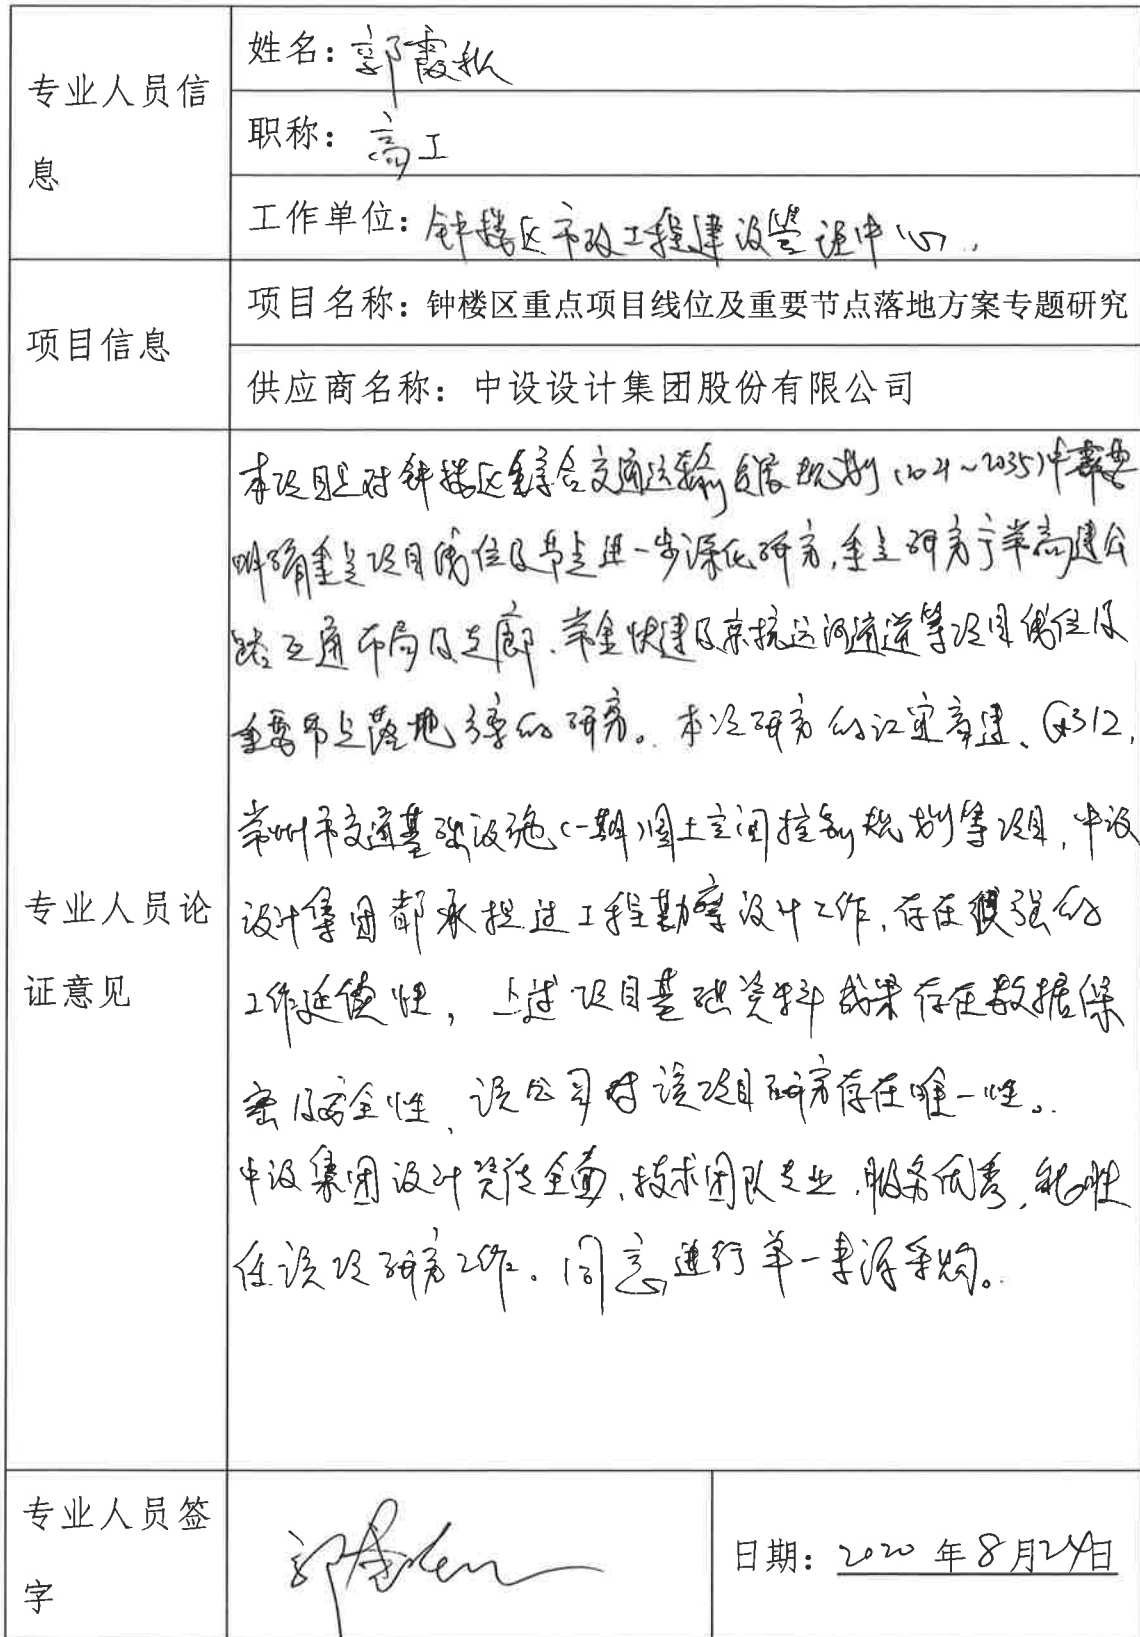 专业人员信
息
姓名：郭霞
职称：高工
工作单位：钟楼区市政工程建设管理中心
项目信息
项目名称：钟楼区重点项目线位及重要节点落地方案专题研究
供应商名称：中设设计集团股份有限公司
专业人员论
证意见
本项目是对钟楼区综合交通运输发展规划（2021~2035）中需要
明确重点项目线位及节点进一步深化研究，重点研究宁常高速公
路互通布局及走廊、常金快速及京杭运河通道等项目线位及
重要节点落地方案的研究。本次研究的江宜高速、G312、
常州市交通基础设施（一期）国土空间控制规划等项目，中设
设计集团都承担过工程勘察设计工作，存在很强的
工作延续性，上述项目基础资料成果存在数据保
密及安全性，该公司对该项目研究存在唯一性。
中设集团设计资质全面，技术团队专业，服务优秀，能胜
任该项研究工作。同意进行单一来源采购。
专业人员签
字
郭
日期：2020年8月24日